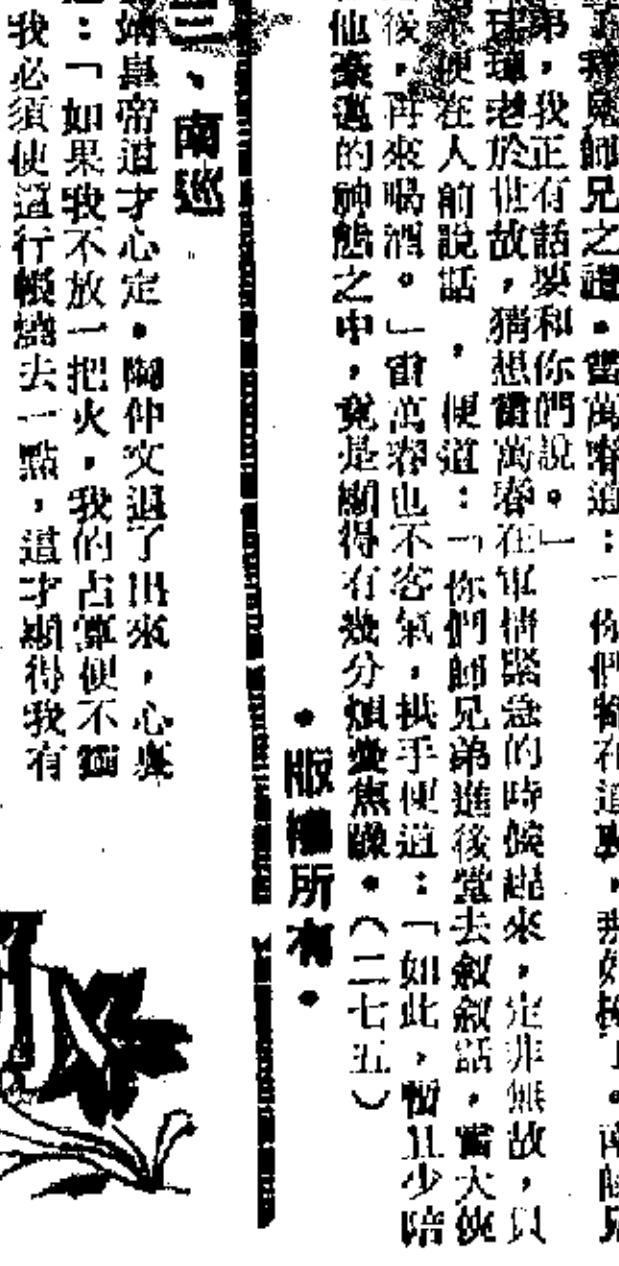 師兄之禮。雷萬春道：「你們都在這裏，
弟，我正有話要和你們說。」
老於世故，猜想雷萬春在軍情緊急的時候趕來，定非無故，只
便在人前說話，便道：「你們師兄弟進後堂去敘敘話，雷大俠
後，再來喝酒。」雷萬春也不客氣，拱手便道：「如此，暫且少陪
他豪邁的神態之中，竟是顯得有幾分煩憂焦躁。（二七五）
•版權所有•
三、南巡
皇帝道才心定。陶仲文退了出來，心與
：「如果我不放一把火，我的占算便不靈
我必須使這行帳燒去一點，這才顯得我有